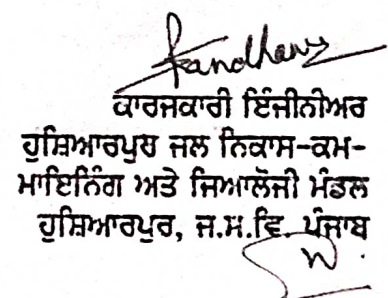 ਕਾਰਜਕਾਰੀ ਇੰਜੀਨੀਅਰ
ਹੁਸ਼ਿਆਰਪੁਰ ਜਲ ਨਿਕਾਸ-ਕਮ-
ਮਾਇਨਿੰਗ ਅਤੇ ਜਿਆਲੋਜੀ ਮੰਡਲ
ਹੁਸ਼ਿਆਰਪੁਰ, ਜ.ਸ.ਵਿ. ਪੰਜਾਬ